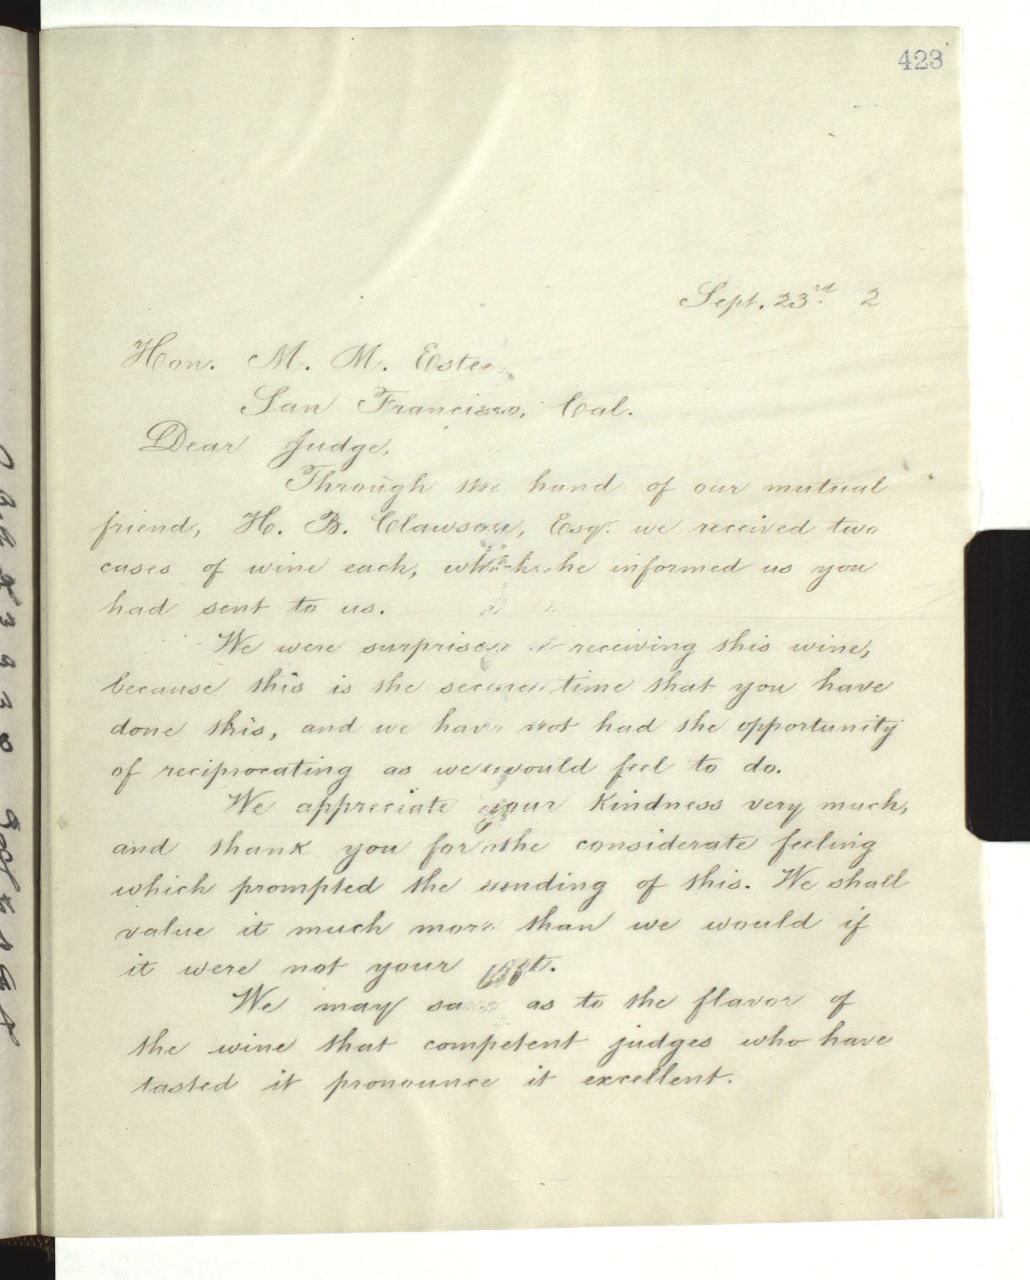 423
Sept. 23rd 2
Hon. M. M. Estee
San Francisco, Cal.
Dear Judge,
Through the hand of our mutual
friend, H. B. Clawson, Esqr. we received two
cases of wine each, which he informed us you
had sent to us.
We were surprised receiving this wine,
because this is the second time that you have
done this, and we have not had the opportunity
of reciprocating as we would feel to do.
We appreciate your kindness very much,
and thank you for the considerate feeling
which prompted the sending of this. We shall
value it much more than we would if
it were not your gift.
We may say as to the flavor of
the wine that competent judges who have
tasted it pronounce it excellent.